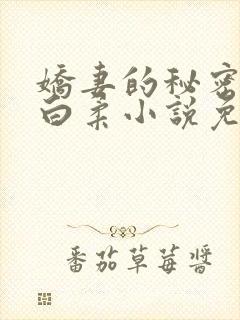 嬌妻的秘密
白柔小說免
番茄草莓醬